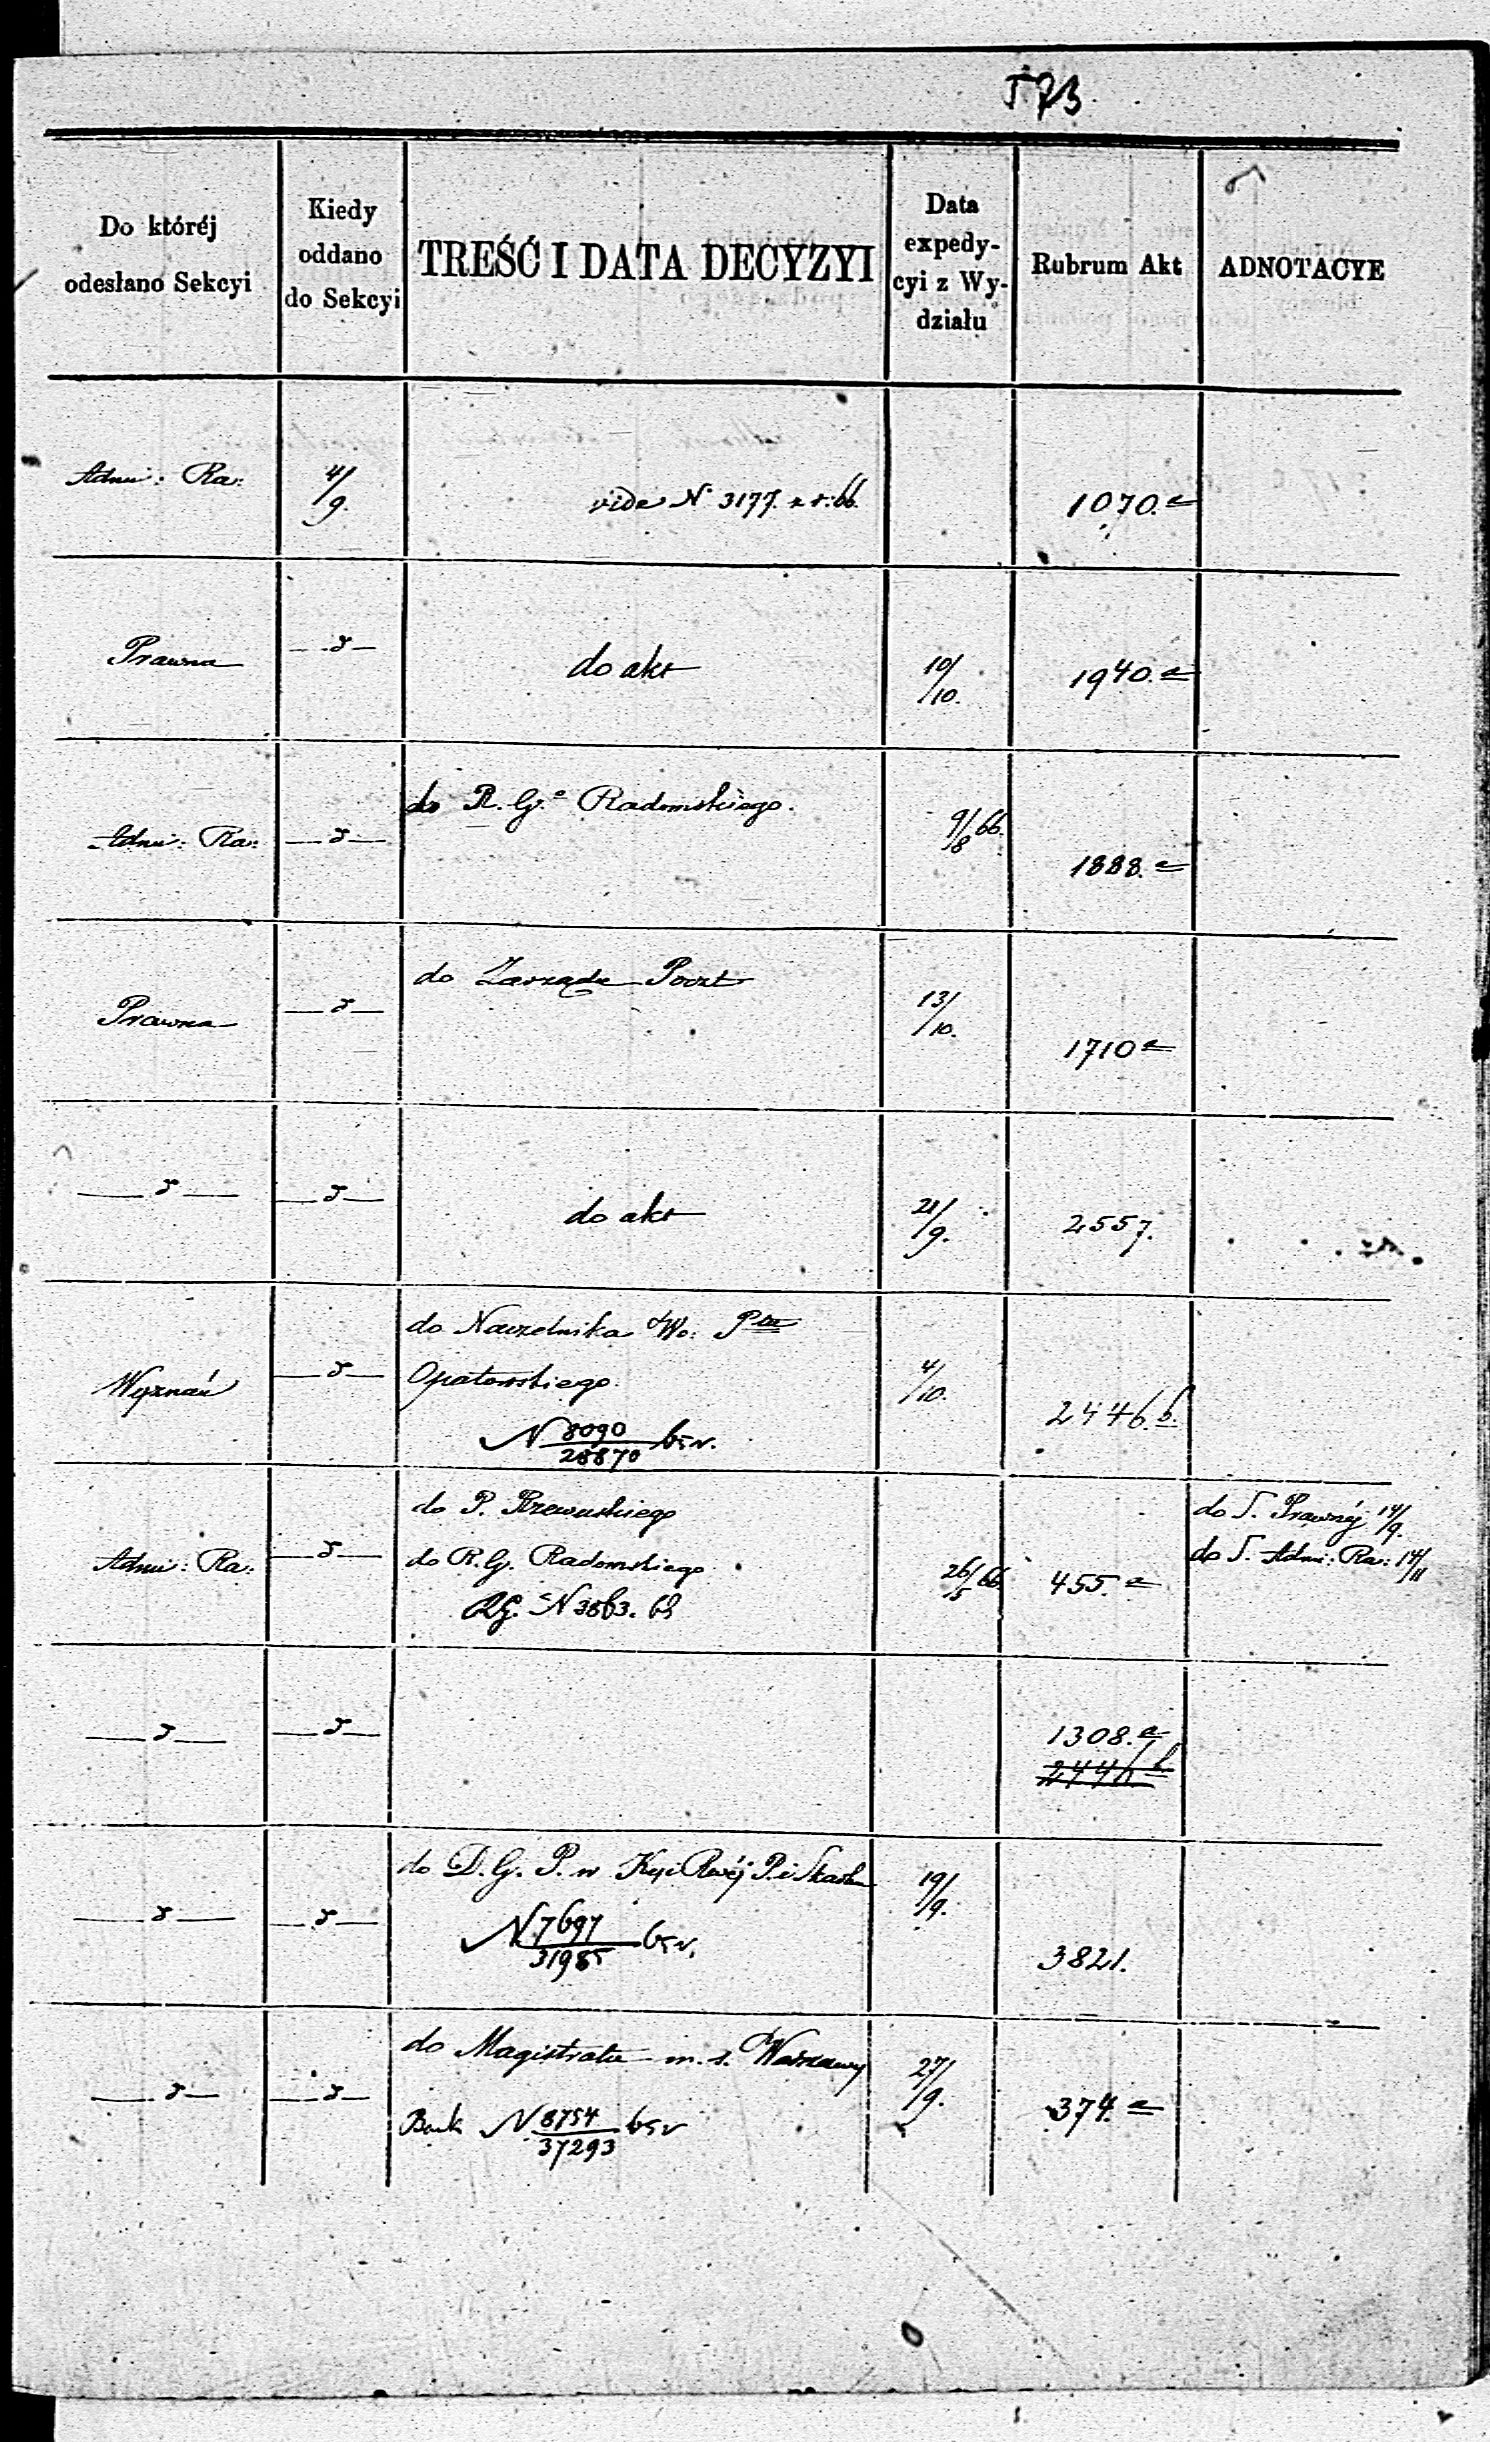 573
Do któréj odesłano Sekcyi
Kiedy oddano do Sekcyi
TREŚĆ I DATA DECYZYI
Data expedycyi z Wydziału
Rubrum Akt
ADNOTACYE
Adm: Ra: 4/9. vide N 3177. z r: 66. 1070. a
Prawna —d— do akt 10/10. 1940. a
Adm: Ra: —d— do R. G. Radomskiego. 9/8 66. 1888. a
Prawna —d— do Zarządu Poczt 13/10. 1710 a
—d— —d— do akt 21/9. 2557.
do Naczelnika Wo: Ptu
Wyznań —d— Opatowskiego. 4/10. 2446. b.
N 8090/28870
do P. Rzewuskiego do S. Prawnéj 14/9.
Adm: Ra: —d— do R. G. Radomskiego 26/5 66. 455 a do S. Adm: Ra: 14/11
RG. N 3863.
—d— —d— 1308. a
2446. b
do D. G. P. w Skarbu 19/9.
—d— —d— N 7697/31985 3821.
do Magistratu m. s. Warszawy 27/9.
—d— —d— Bank N 8754/37293 374. a